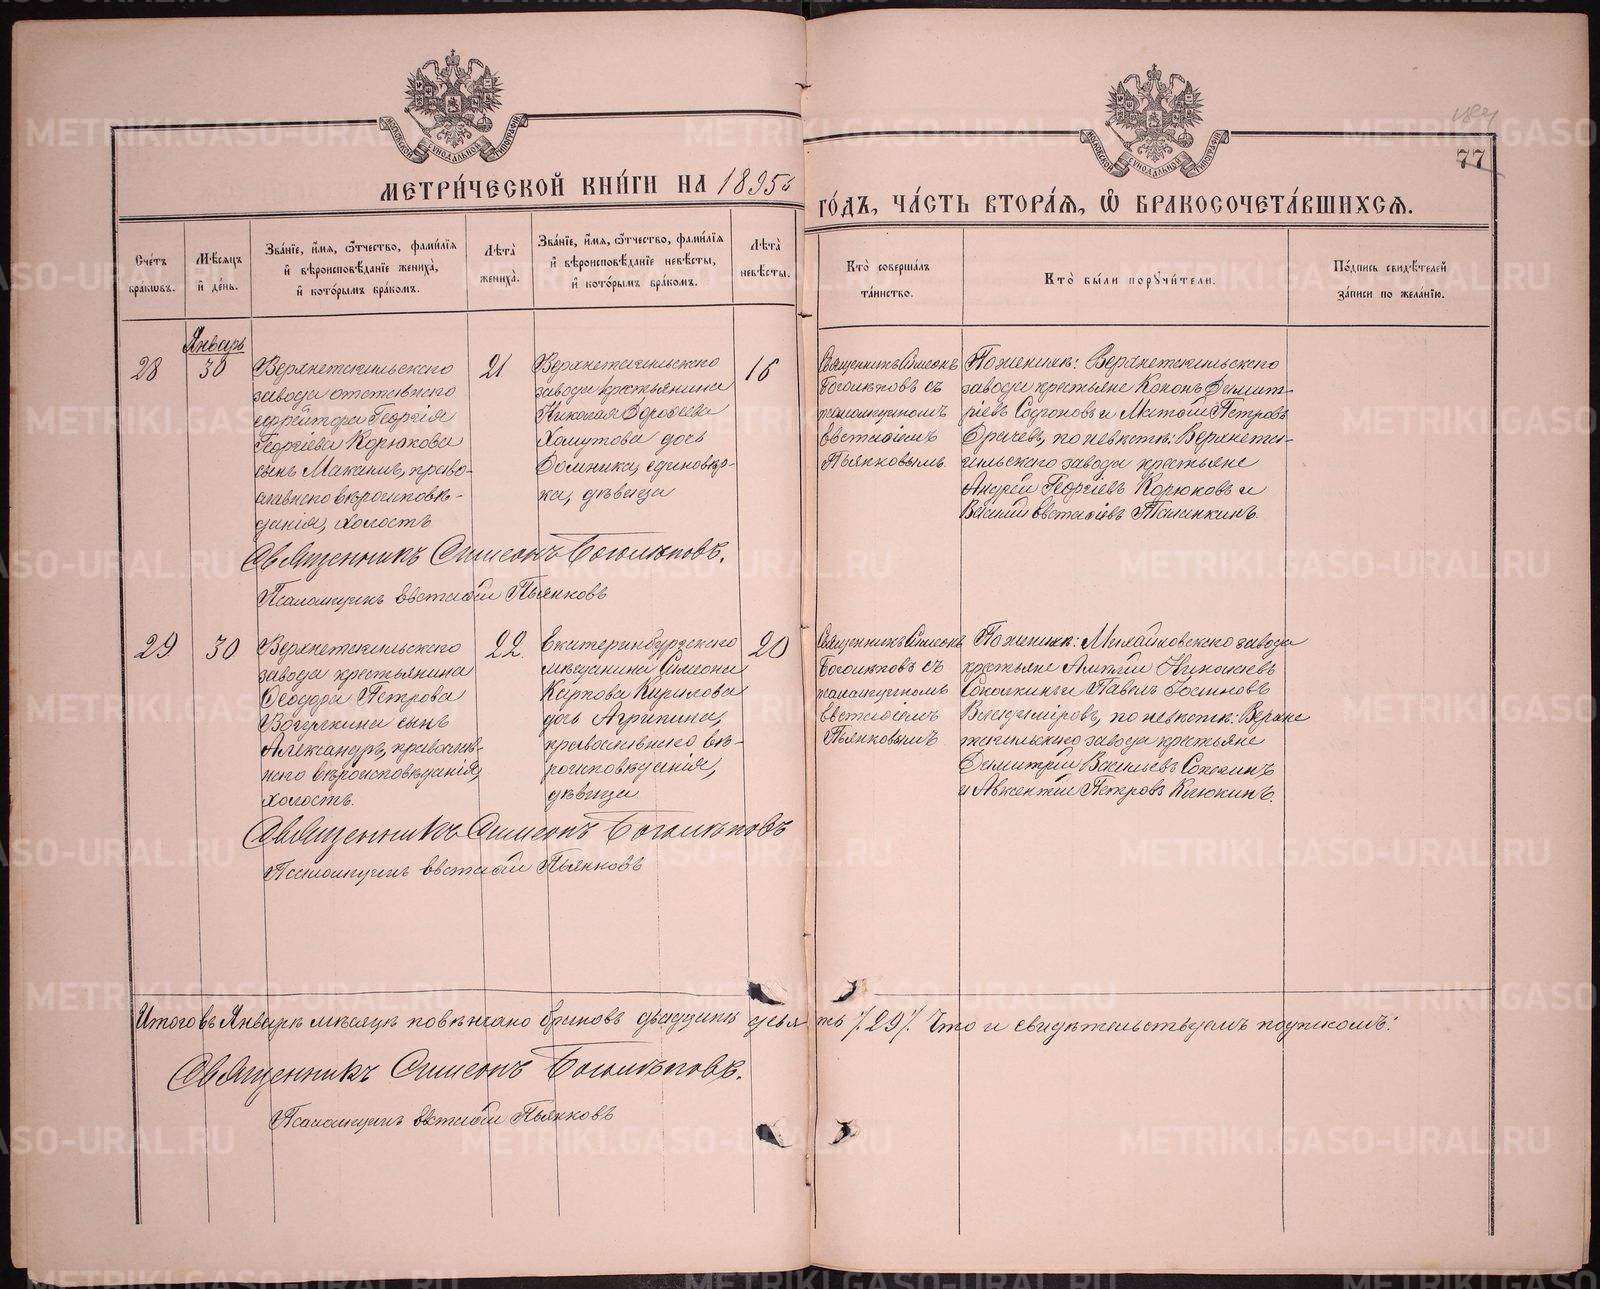 МЕТРИ́ЧЕСКОЙ КНИ́ГИ НА 1895й
ГО́ДЪ, ЧА́СТЬ ВТОРА́Я, Ѿ БРАКОСОЧЕТА́ВШИХСЯ.
77
Сче́тъ бра́кѡвъ.
Мѣ́сяцъ и҆ де́нь.
Зва́нїе, и҆́мя, ѻ҆́тчество, фами́лїя и҆ вѣроисповѣ́данїе жениха̀, и҆ кото́рымъ бра́комъ.
Лѣ́та жениха̀.
Зва́нїе, и҆́мя, ѻ҆́тчество, фами́лїя и҆ вѣроисповѣ́данїе невѣ́сты, и҆ кото́рымъ бра́комъ.
Лѣ́та невѣ́сты.
Кто̀ соверша́лъ та́инство.
Кто̀ бы́ли порꙋчи́тели.
По́дпись свидѣ́телей за́писи по жела́нїю.
28
Январь
30
Верхнетагильскаго
завода отставнаго
ефрейтора Георгія
Георгіева Корюкова
сынъ Максимъ, право-
славнаго вѣроисповѣ-
данія, холостъ
21
Верхнетагильскаго
завода крестьянина
Николая
Хомутова дочь
Домника, единовѣр-
ка, дѣвица
16
Священникъ Симеонъ
Боголѣповъ съ
псаломщикомъ
Евстаѳіемъ
Пьянковымъ
По женихѣ: Верхнетагильскаго
завода крестьяне Кононъ Димит-
ріевъ Сафоновъ и Матѳій Петровъ
Драчевъ, по невѣстѣ: Верхнета-
гильскаго завода крестьяне
Андрей Георгіевъ Корюковъ и
Василій Евстаѳіевъ Таланкинъ.
Священникъ Симеонъ Боголѣповъ.
Псаломщикъ Евстаѳій Пьянковъ
29
30
Верхнетагильскаго
завода крестьянина
Ѳеодора Петрова
сынъ
Александръ, православ-
наго вѣроисповѣданія,
холостъ.
22
Екатеринбургскаго
мѣщанина Симеона
Карпова Кирилова
дочь Агрипина,
православнаго вѣ-
роисповѣданія,
дѣвица
20
Священникъ Симеонъ
Боголѣповъ съ
псаломщикомъ
Евстаѳіемъ
Пьянковымъ
По женихѣ: Михайловскаго завода
крестьяне Николаевъ
и Павелъ
Владиміровъ, по невѣстѣ: Верхне-
тагильскаго завода крестьяне
Димитрій Васильевъ
и Авксентій Петровъ Клюкинъ.
Священникъ Симеонъ Боголѣповъ
Псаломщикъ Евстаѳій Пьянковъ
Итого въ Январѣ мѣсяцѣ повѣнчано браковъ двадцать девять /29/. Что и свидѣтельствуемъ подписомъ:
Священникъ Симеонъ Боголѣповъ.
Псаломщикъ Евстаѳій Пьянковъ
METRIKI.GASO-URAL.RU